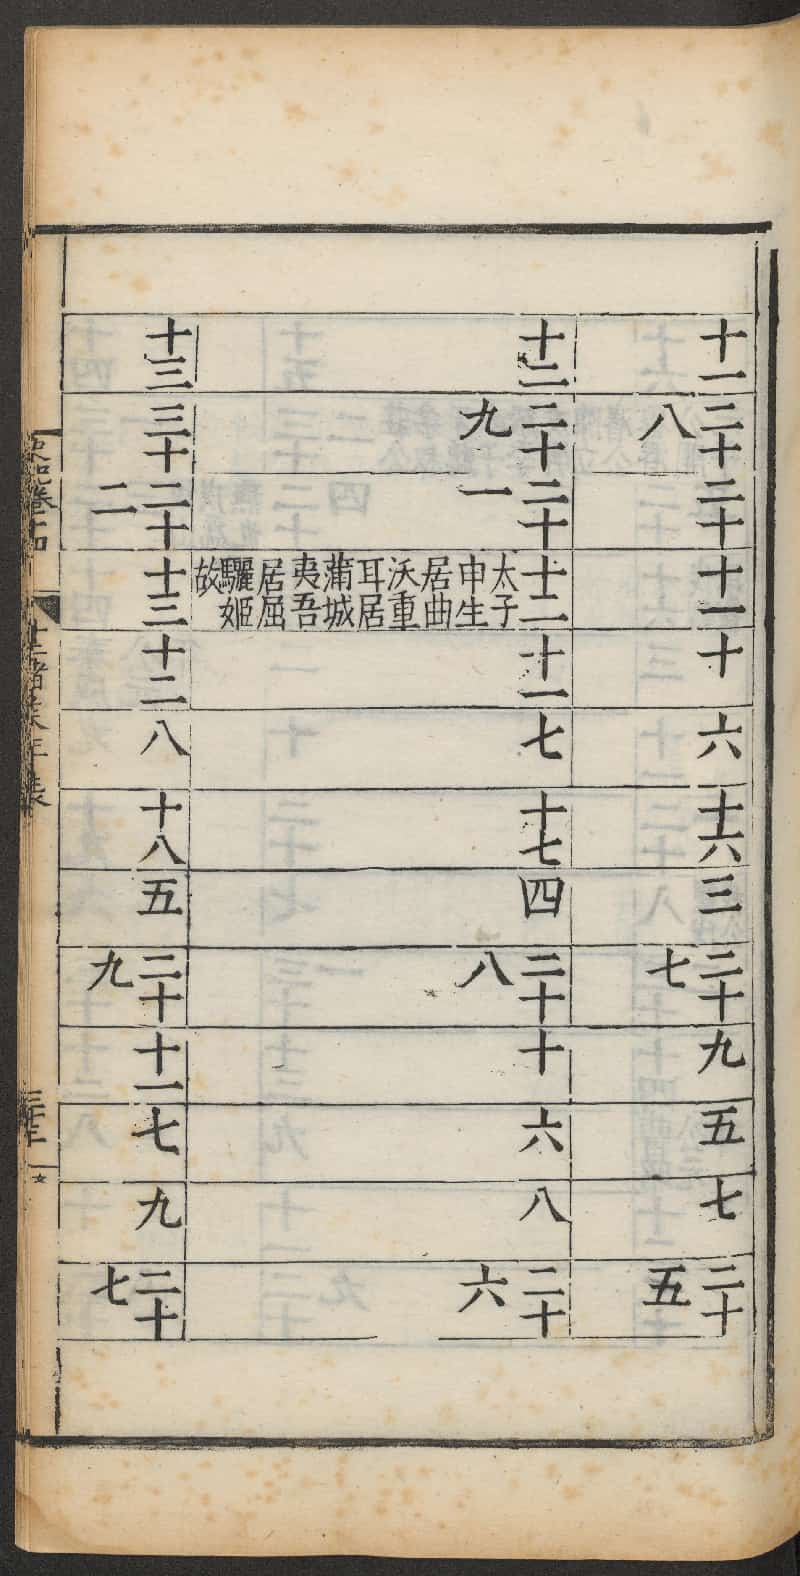 十一
二十八
二十
十一
十
六
十六
三
二十七
九
五
七
二十五
十二
二十九
二十一
十二
太子
申生
居曲
沃重
耳居
蒲城
夷吾
居屈
驪姬
故
十一
七
十七
四
二十八
十
六
八
二十六
十三
三十
二十二
十三
十二
八
十八
五
二十九
十一
七
九
二十七
史記卷十四
十二諸侯年表